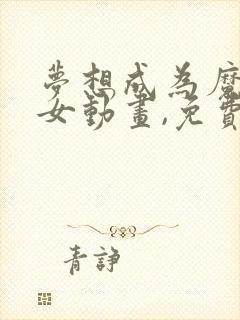 夢想成為魔
女動畫,免費
青諍